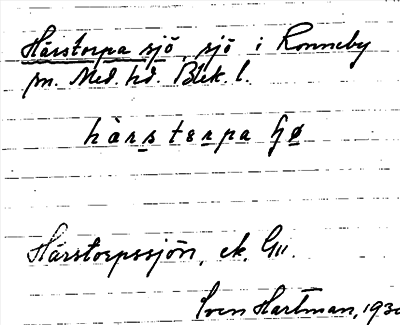 Hårstorpa sjö, sjö i Ronneby
sn. Med. hd. Blek. l.
hàrstɛrpa ʃø
Hårstorpssjön, ek. G111.
Sven Hartman, 193